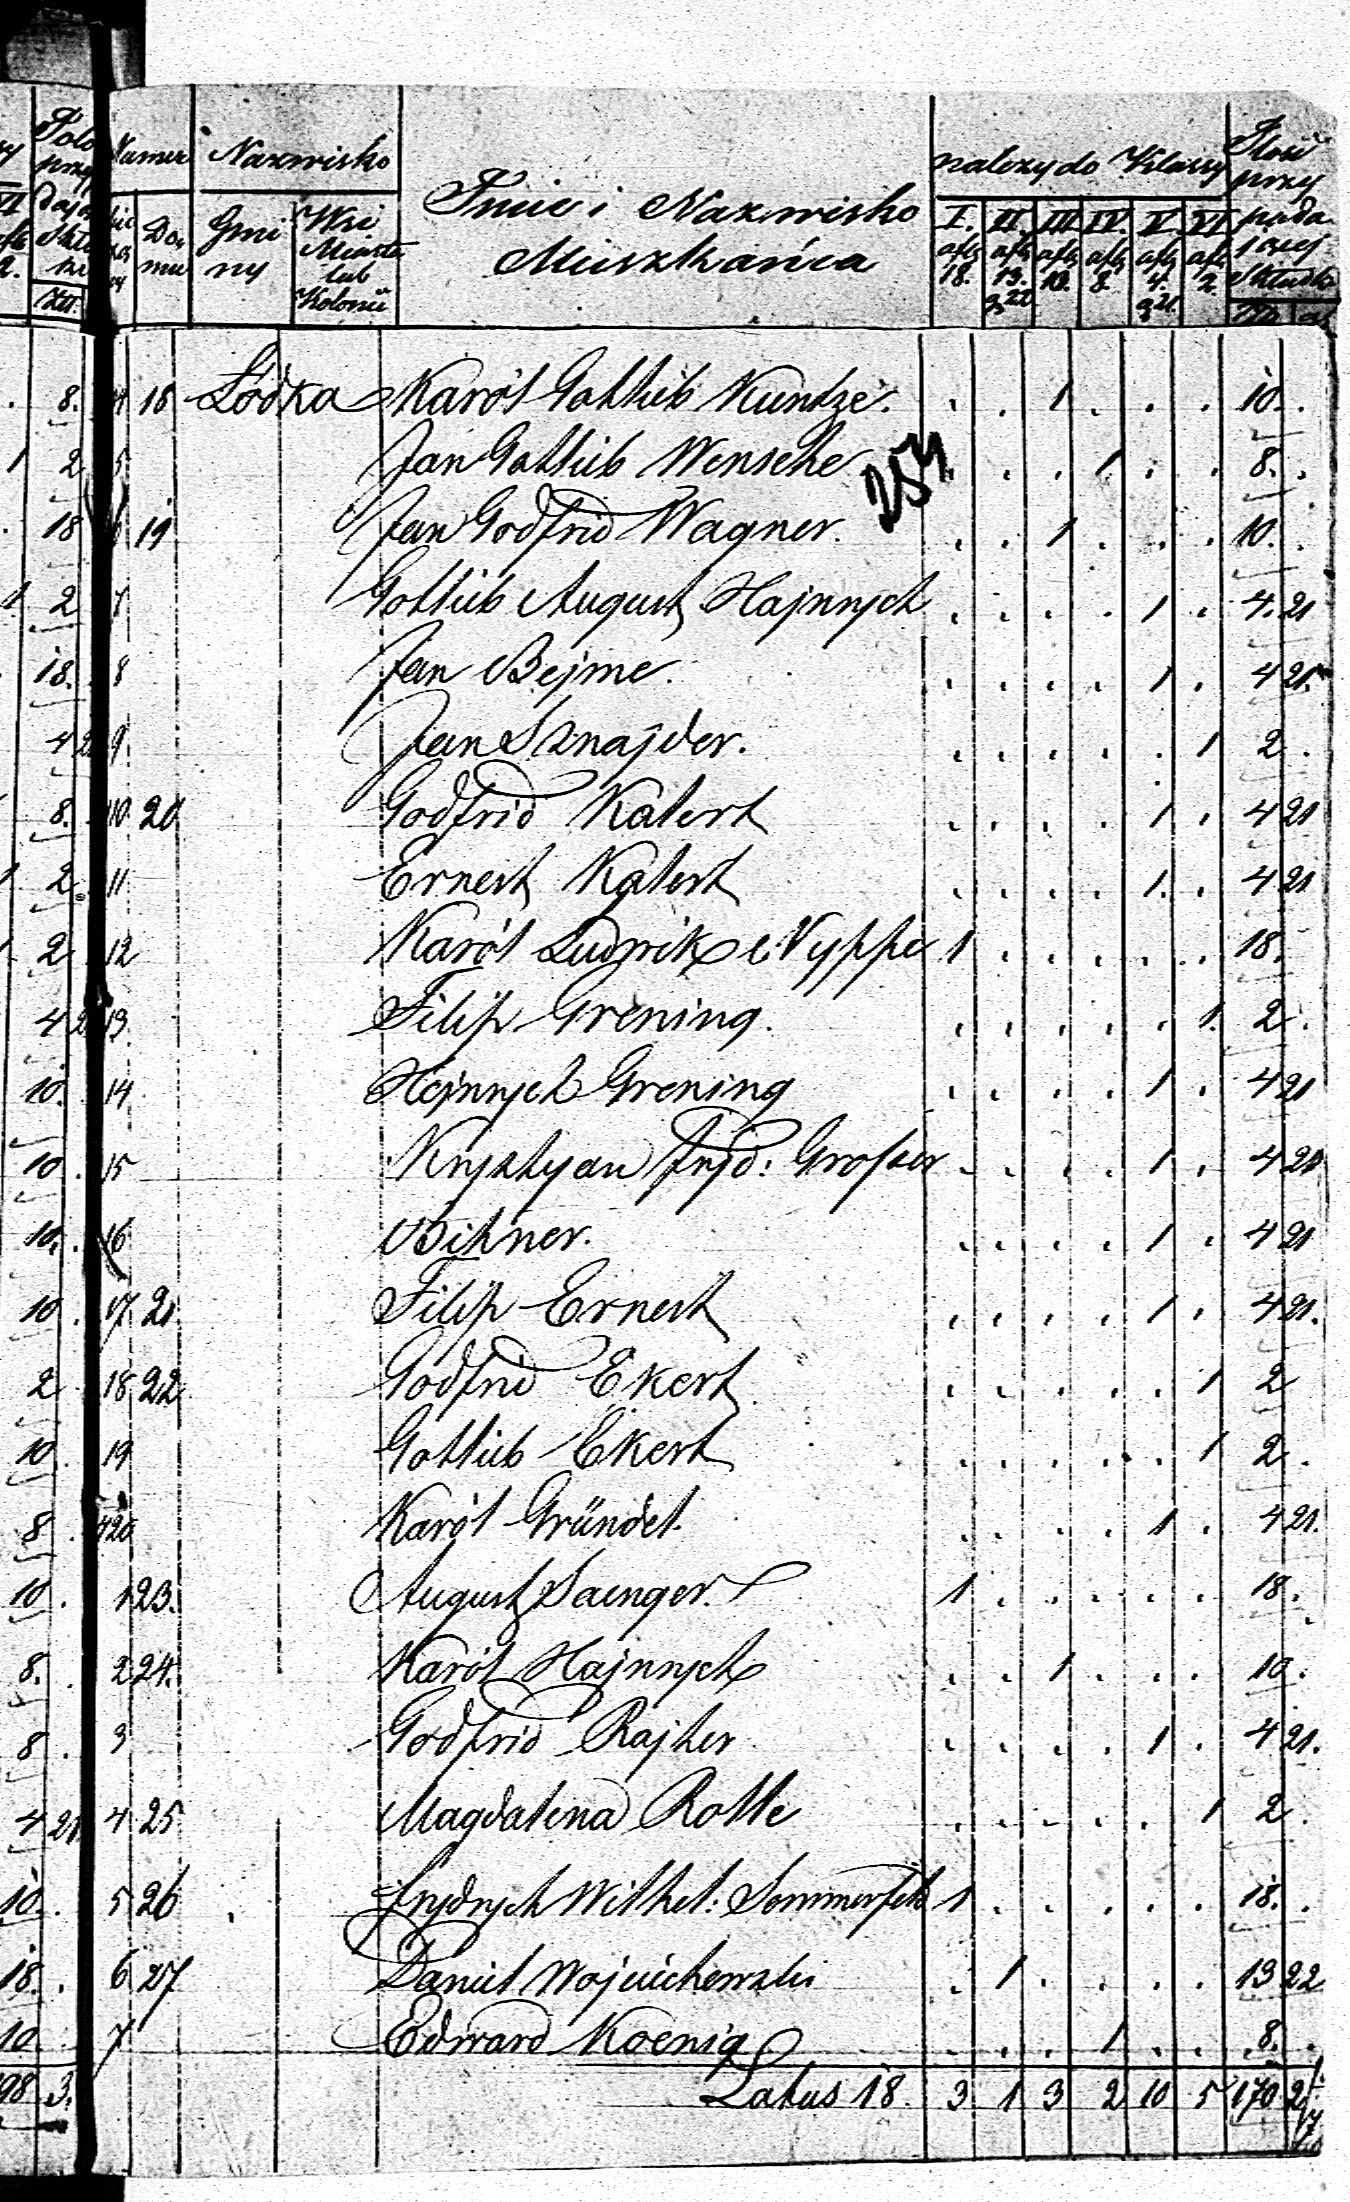 Numer Nazwisko Imie i Nazwisko Mieszkańca należy do Klassy Ilość przy pada jącej Składki
Do mu Gmi ny Wsi Miasta lub Kolonii I. II. III IV. V. VI
18. 13. 22 10. 8. 4. 21. 2.
18 Lodka Karól Gottlieb Kuntze. . . 1 . . . 10. .
5 Jan Gottlieb Wensche . . . 1 . . 8. .
254
19 Jan Godfrid Wagner. . . 1 . . . 10. .
7 Gottlieb August Hajnrych . . . . 1 . 4. 21
8 Jan Bejme. . . . . 1 . 4 21.
9. Jan Sznajder. . . . . . 1 2 .
10. 20 Godfrid Katert . . . . 1 . 4 21
11 Ernest Katert . . . . 1. . 4 21
12 Karól Ludwik Nyppe 1 . . . . . 18.
13. Filip Grening. . . . . . 1. 2 .
14 Hejnrych Grening . . . . 1 . 4 21
15 Krystyan Fryd: Grosser . . . . 1 . 4 21
16 Bitner. . . . . 1 . 4 21
17. 21. Filip Ernest . . . . 1 . 4 21.
18 22 Godfrid Ekert . . . . . 1 2
19 Gottlieb Ekert . . . . . 1 2 .
420 Karól Gründel. . . . . 1 . 4 21.
1 23. August Saenger. 1 . . . . . 18.
2 24. Karól Hajnrych . . 1 . . . 10.
3 Godfrid Rajter . . . . 1 . 4 21.
4 25 Magdalena Rotte . . . . . 1 2 .
5 26 Frydrych Wilhel: Sommerfeld 1 . . . . . 18. .
6 27 Daniel Wojciechowski . 1 . . . . 13 22
7 Edward Koenig . . . 1 . . 8. .
Latus 18. 3 1 3 2 10 5 170